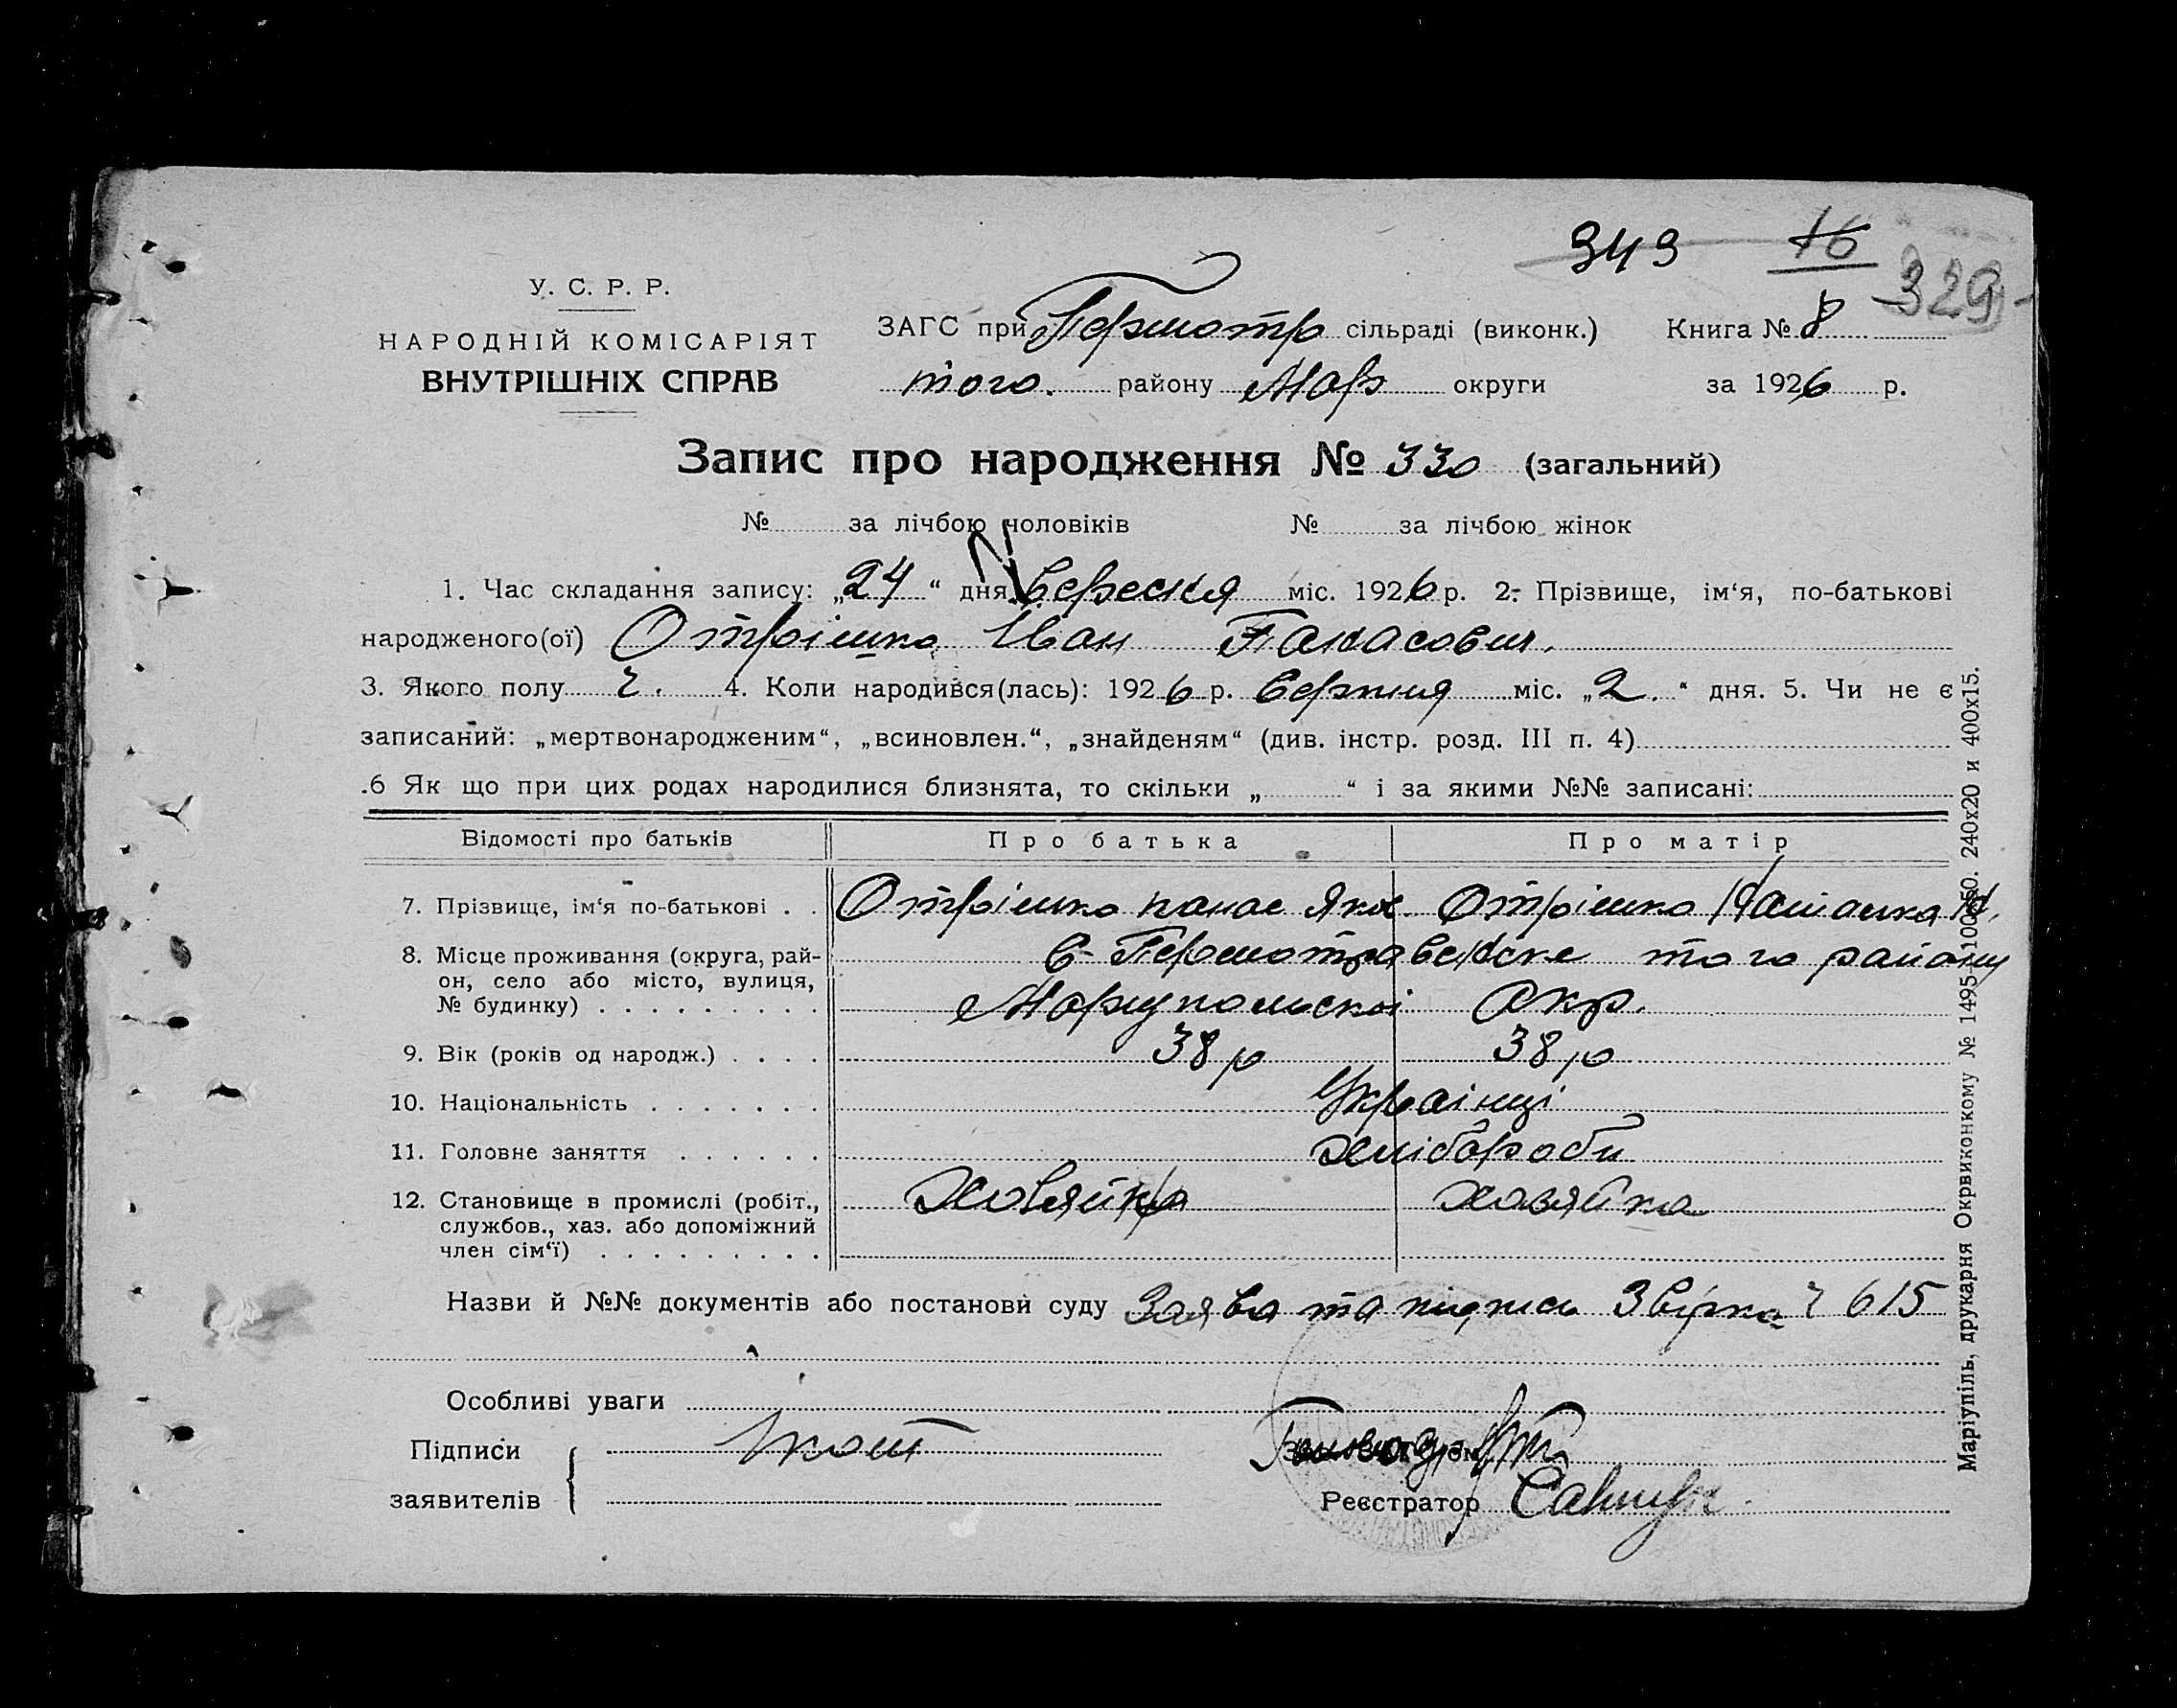 343 16
329
У. С. Р. Р.
НАРОДНІЙ КОМІСАРІЯТ
ВНУТРІШНІХ СПРАВ
ЗАГС при Першотр сільраді (виконк.) Книга № 8
того. району Мар округи за 1926 р.
Запис про народження № 330 (загальний)
№ за лічбою чоловіків № за лічбою жінок
1. Час складання запису: „24“ дня Вересня міс. 1926 р. 2. Прізвище, ім‘я, по-батькові
народженого(ої) Отрішко Іван Панасович.
3. Якого полу ч. 4. Коли народився(лась): 1926 р. Серпня міс. „2.“ дня. 5. Чи не є
записаний: „мертвонародженим“, „всиновлен.“, „знайденям“ (див. інстр. розд. III п. 4)
.6 Як що при цих родах народилися близнята, то скільки „ “ і за якими №№ записані:
Відомості про батьків Про батька Про матір
7. Прізвище, ім‘я по-батькові . . Отрішко Панас Яков. Отрішко
8. Місце проживання (округа, рай-
он, село або місто, вулиця,
№ будинку) . . . . . . . . .
с. Першотравенске того району
Маріупольскоі Окр.
9. Вік (років од народж.) . . . . 38 р 38 р
10. Національність . . . . . . . Украінці
11. Головне заняття . . . . . . хлібороби
12. Становище в промислі (робіт.,
службов., хаз. або допоміжний
член сім‘ї) . . . . . . . . .
хозяйка
Назви й №№ документів або постанови суду Заява та підпись 615
Особливі уваги
Підписи
заявителів
Реєстратор
Маріупіль, друкарня Окрвиконкому № 1495-100х50. 240х20 и 400х15.